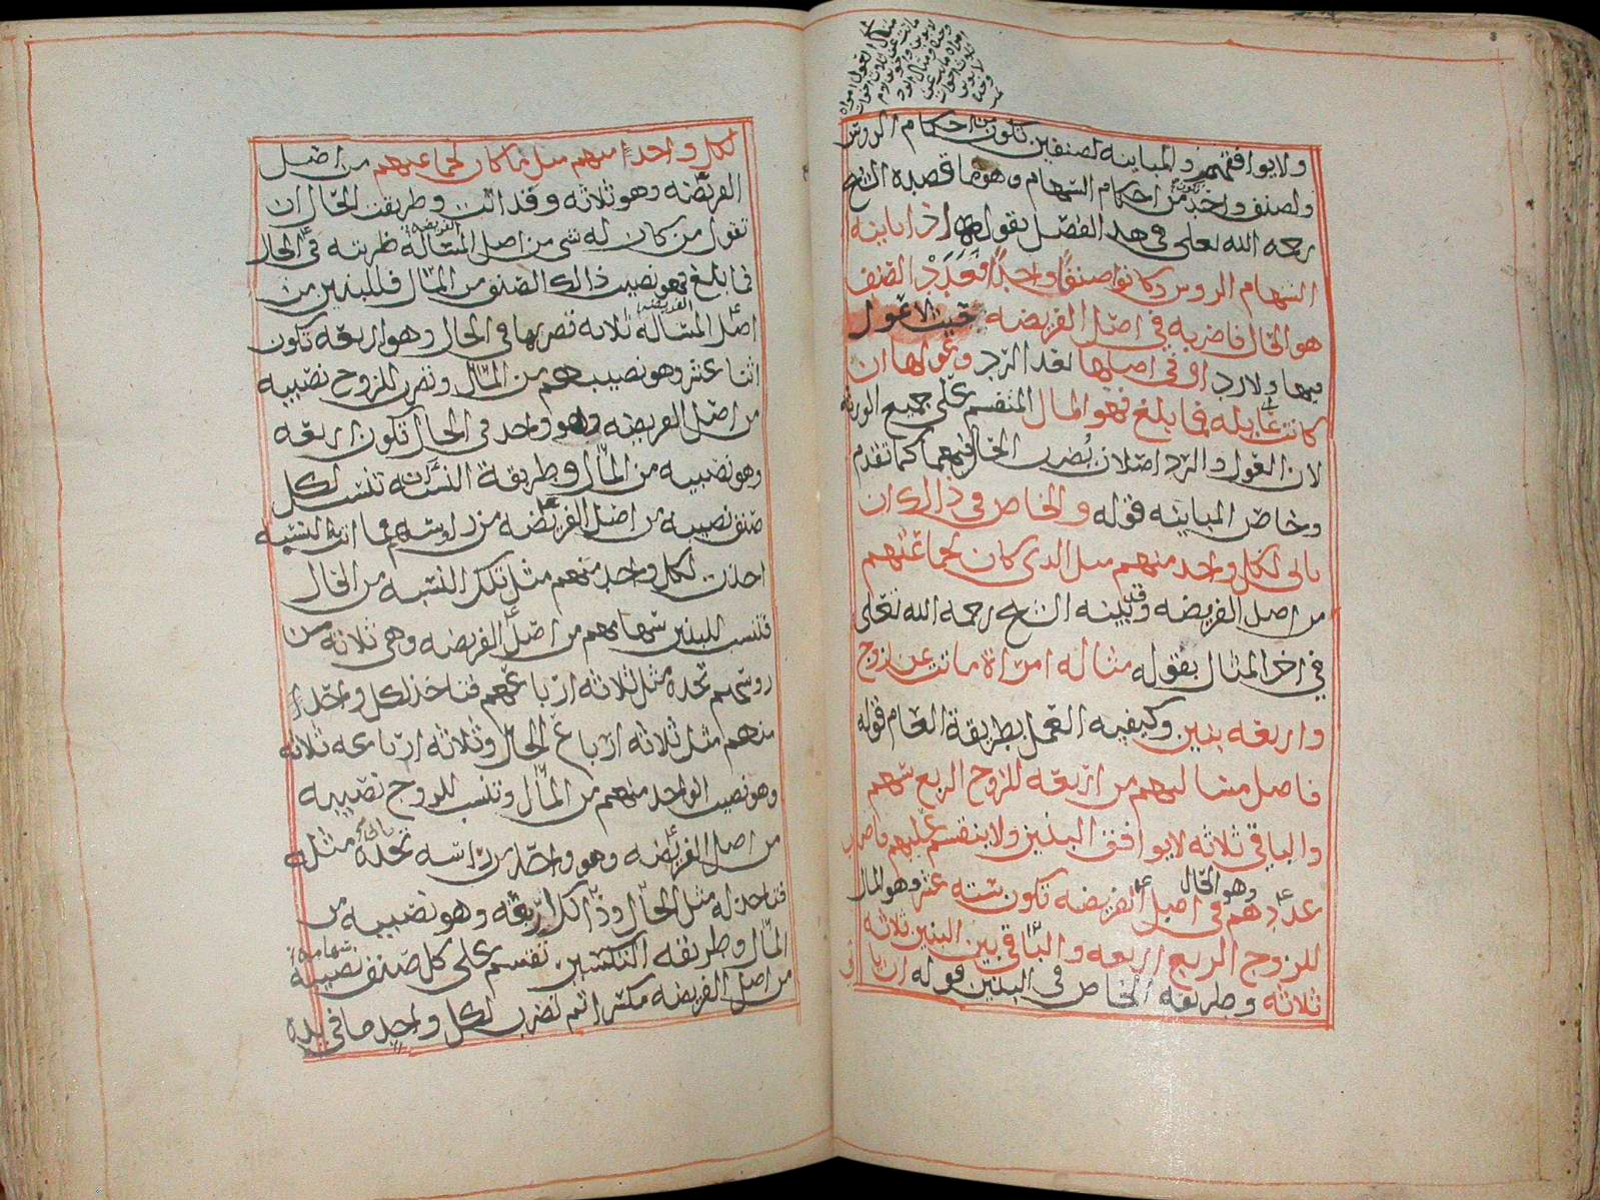 ولا يوافقهم والمباينه لصنفين تكون من احكام الروس
ولصنف واحد تكون من احكام السهام وهو ما قصده الشيخ
رحمه الله تعلى في هذ الفصل بقوله اذا باينه
السهام الروس وكانوا صنفا واحدا فعدد الصنف
هو الحال فاضربه في اصل الفريضه حيث لا عول
فيها ولا رد او في اصلها بعد الرد وعولها ان
كانت عايله فما بلغ فهو المال المنقسم على جميع الورثه
لان العول والرد اصلان يضرب الحال فيهما كما تقدم
وخاص المباينه قوله والخاص في ذالك ان
ياتى لكل واحد منهم مثل الذي كان لجماعتهم
من اصل الفريضه وقد بينه الشيخ رحمه الله تعلى
في اخر المثال بقوله مثاله امراة ماتت عن زوج
واربعه بنين وكيفيه العمل بطريقة العام قوله
فاصل مسالتهم من اربعه للزوج الربع سهم
والباقي ثلاثه لا يوافق البنين ولا ينقسم عليهم فاضرب
عددهم وهو الحال في اصل الفريضه تكون سته عشر وهو المال
للزوج الربع اربعه والباقي بين البنين ثلاثه
ثلاثه وطريقه الخاص في البنين قوله ان ياتى
لكل واحدا منهم مثل ما كان لجماعتهم من اصل
الفريضه وهو ثلاثه وقد اتت وطريقت الحال ان
تقول من كان له شي من اصل المسالة الفريضه ضربته في الحال
فما بلغ فهو نصيب ذالك الصنف من المال فللبنين من
اصل المساله الفريضه ثلاثه تضربها في الحال وهو اربعه تكون
اثنا عشر وهو نصيبهم من المال وتضرب للزوج نصيبه
من اصل الفريضه وهو واحد في الحال تكون اربعه
وهو نصيبه من المال وطريقة النسبه ان تنسب لكل
صنف نصيبه من اصل الفريضه من راسه فما اتت النسبه
اخذت لكل واحد منهم مثل تلك النسبه من الحال
فتنسب للبنين سهامهم من اصل الفريضه وهي ثلاثه من
روسهم تجده مثل ثلاثه ارباعهم فتاخذ لكل واحدا
منهم مثل ثلاثه ارباع الحال وثلاثه ارباعه ثلاثه
وهو نصيب الواحد منهم من المال وتنسب للزوج نصيبه
من اصل الفريضه وهو واحد من راسه تجده مثله
فتاخذ له مثل الحال وذالك اربعه وهو نصيبه من
المال وطريقه التكسير تقسم على كل صنف نصيبه
من اصل الفريضه مكسرا ثم تضرب لكل واحد ما في يده